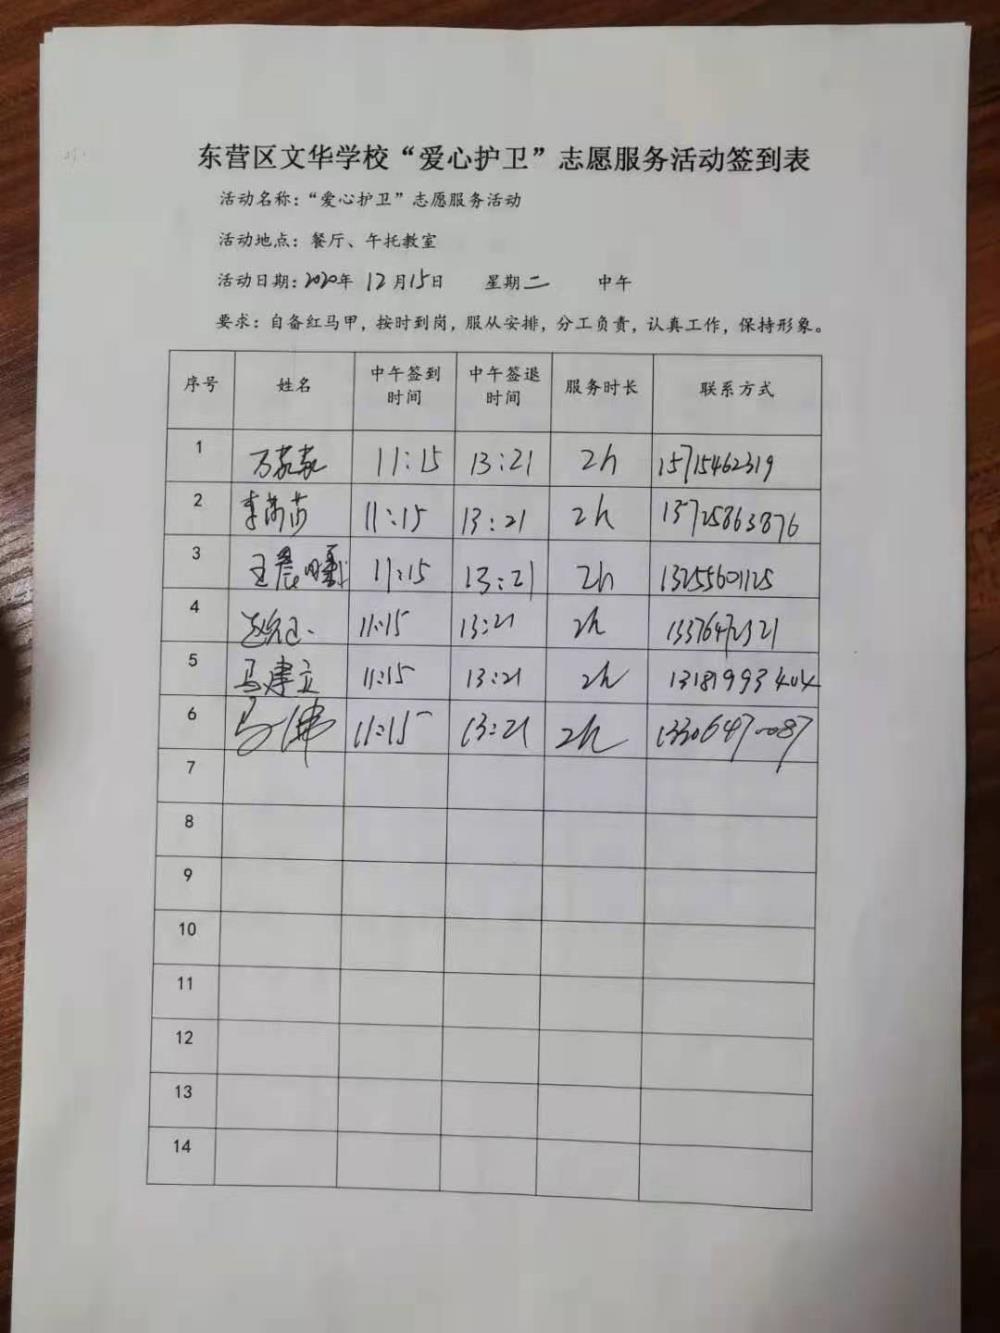 东营区文华学校“爱心护卫”志愿服务活动签到表
活动名称：“爱心护卫”志愿服务活动
活动地点：餐厅、午托教室
活动日期：2020年 12月15日 星期二 中午
要求：自备红马甲，按时到岗，服从安排，分工负责，认真工作，保持形象。
序号 姓名 中午签到时间 中午签退时间 服务时长 联系方式
1 11:15 13:21 2h 15715462319
2 11:15 13:21 2h 13725863876
3 王晨曦 11:15 13:21 2h 13255601125
4 11:15 13:21 2h
5 马建立 11:15 13:21 2h 13181993404
6 11:15 13:21 2h
7
8
9
10
11
12
13
14